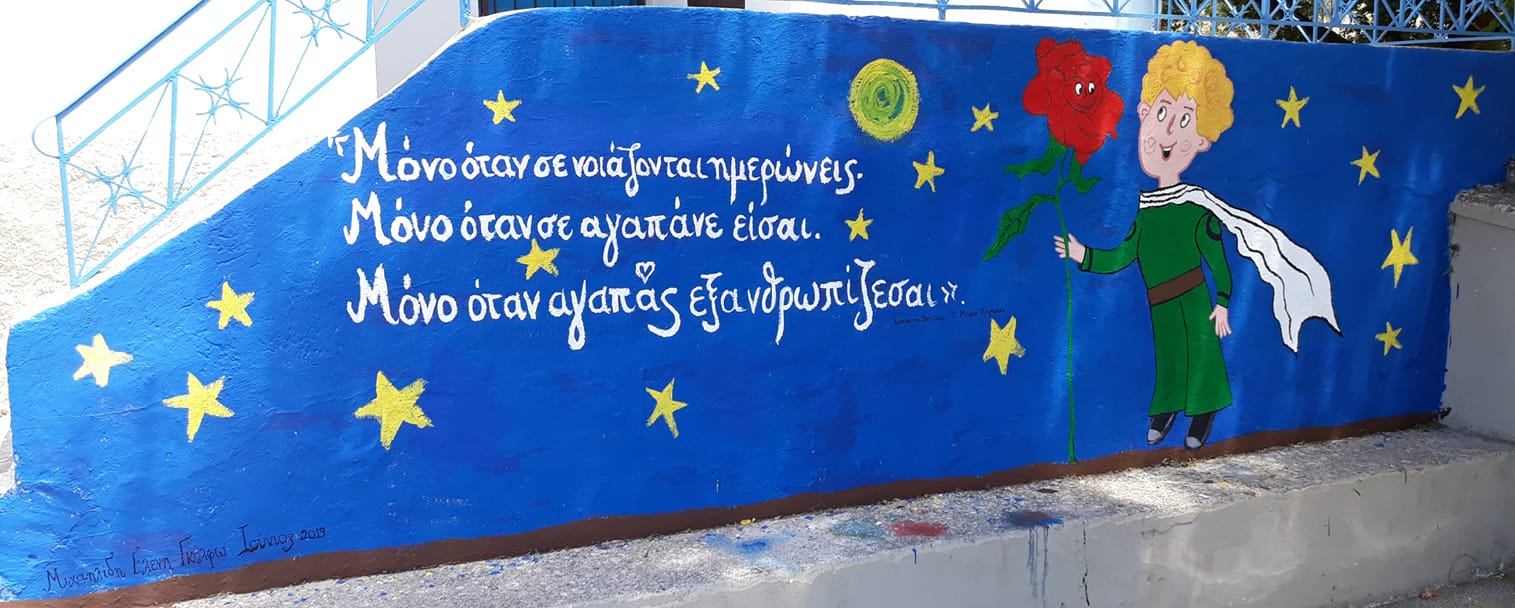 "Μόνο όταν σε νοιάζονται ημερώνεις.
Μόνο όταν σε αγαπάνε είσαι.
Μόνο όταν αγαπάς εξανθρωπίζεσαι».
Μιχαηλίδη Ελένη Γκόλφω Ιούνιος 2019